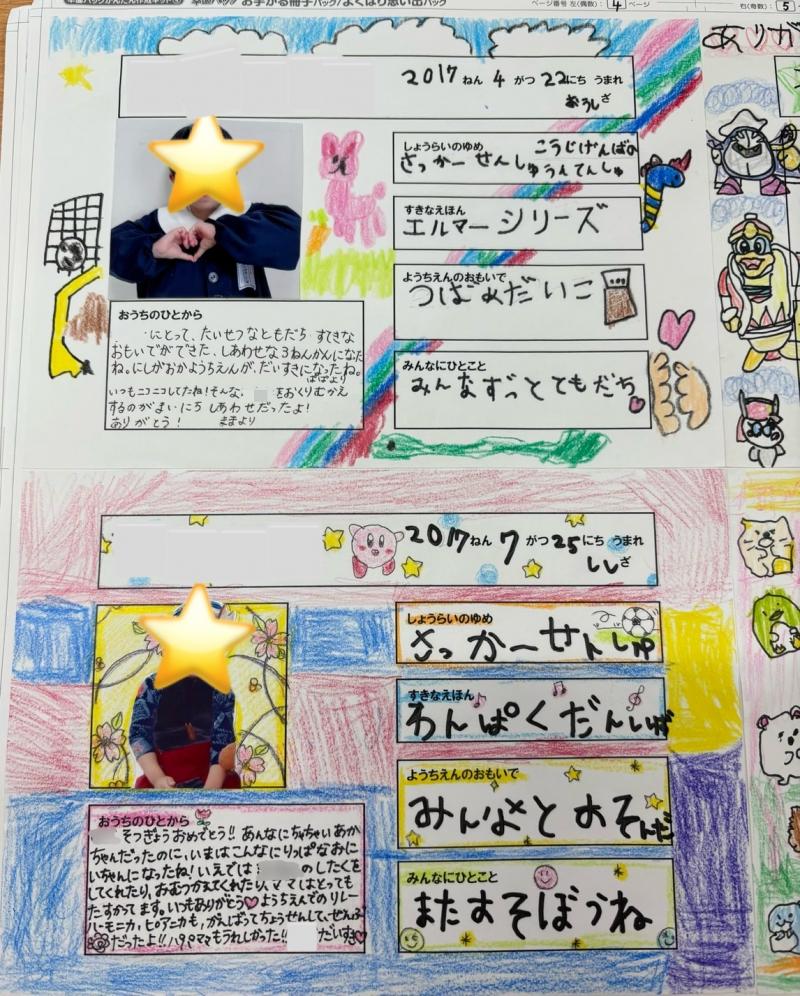 卒園パックかんたん作成キット 卒園パック お手がる冊子パック/よくばり思い出パック
ページ番号 左(偶数): 4 ページ
右(奇数): 5
ありが
2017 ねん 4 がつ 22にち うまれ
おうしざ
しょうらいのゆめ
さっかーせんしゅ
こうじげんばの
うんてんしゅ
すきなえほん
エルマーシリーズ
ようちえんのおもいで
つばめだいこ
みんなにひとこと
みんなずっとともだち
おうちのひとから
にとって、たいせつなともだち すてきな
おもいでができた、しあわせな3ねんかんになった
ね。にしがおかようちえんが、だいすきになったね。
ぱぱより
いつもニコニコしてたね!そんな、 をおくりむかえ
するのがまいにち しあわせだったよ!
ありがとう! ままより
2017 ねん 7 がつ 25にち うまれ
ししざ
しょうらいのゆめ
さっかーせんしゅ
すきなえほん
わんぱくだんしげ
ようちえんのおもいで
みんなとあそんだ
みんなにひとこと
またあそぼうね
おうちのひとから
そつぎょうおめでとう!! あんなにちっちゃいあか
ちゃんだったのに、いまはこんなにりっぱなおに
いちゃんになったね! いえでは のしたくを
してくれたり、おむつかえてくれたり、ママはとっても
たすかってます。いつもありがとう♡ ようちえんでのリレー
ハーモニカ、ピアニカも、がんばってちょうせんして、ぜんぶ
だったよ!! パパもママもうれしかった!! だいすき♡